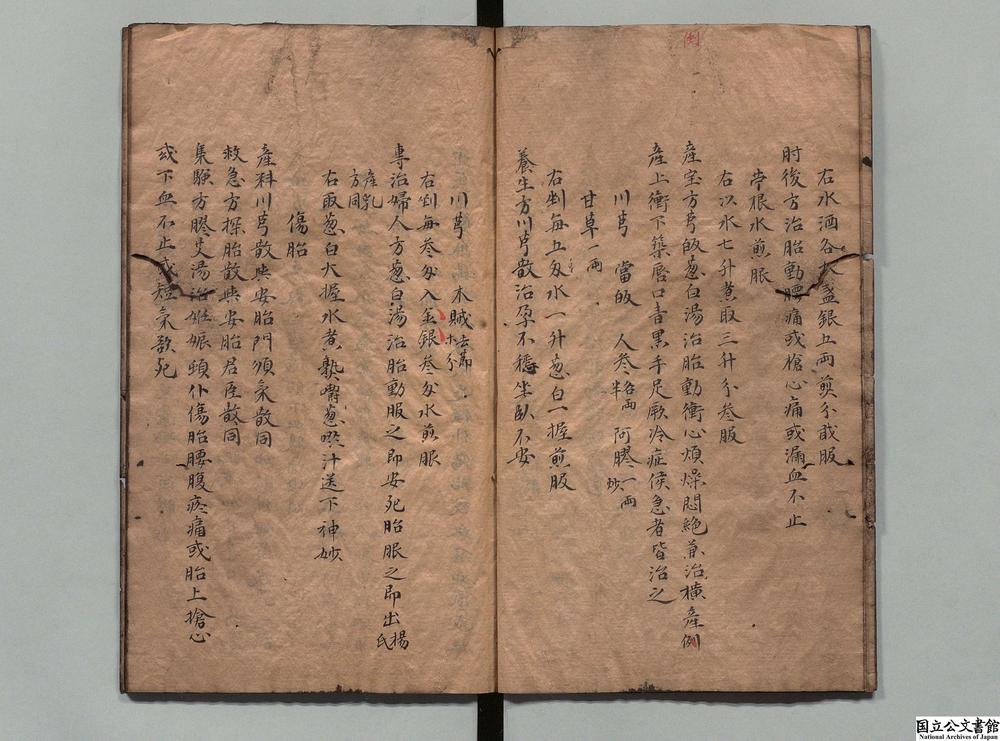 倒
右水酒各大盞銀五兩煎分貳服
肘後方治胎動腰痛或槍心痛或漏血不止
苧根水煎服
右以水七升煮取三升分叁服
産宝方芎皈葱白湯治胎動衝心煩燥悶絶兼治橫産例
産上衝下築唇口青黒手足厥冷症候急者皆治之
川芎 當皈 人参各兩半 阿膠炒一兩
甘草一兩
右剉每五匁水一升葱白一握煎服
養生方川芎散治孕不穩坐臥不安
川芎 木賊去節各木分
右剉每叁匁入金銀叁匁水煎服
專治婦人方葱白湯治胎動服之即安死胎服之即出楊氏
産乳方同
右取葱白大握水煮熟嚼葱喫汁送下神妙
傷胎
産科川芎散與安胎門順氣散同
救急方探胎散與安胎君臣散同
集驗方膠艾湯治姙娠頓仆傷胎腰腹疼痛或胎上搶心
或下血不止或短氣欲死
国立公文書館
National Archives of Japan